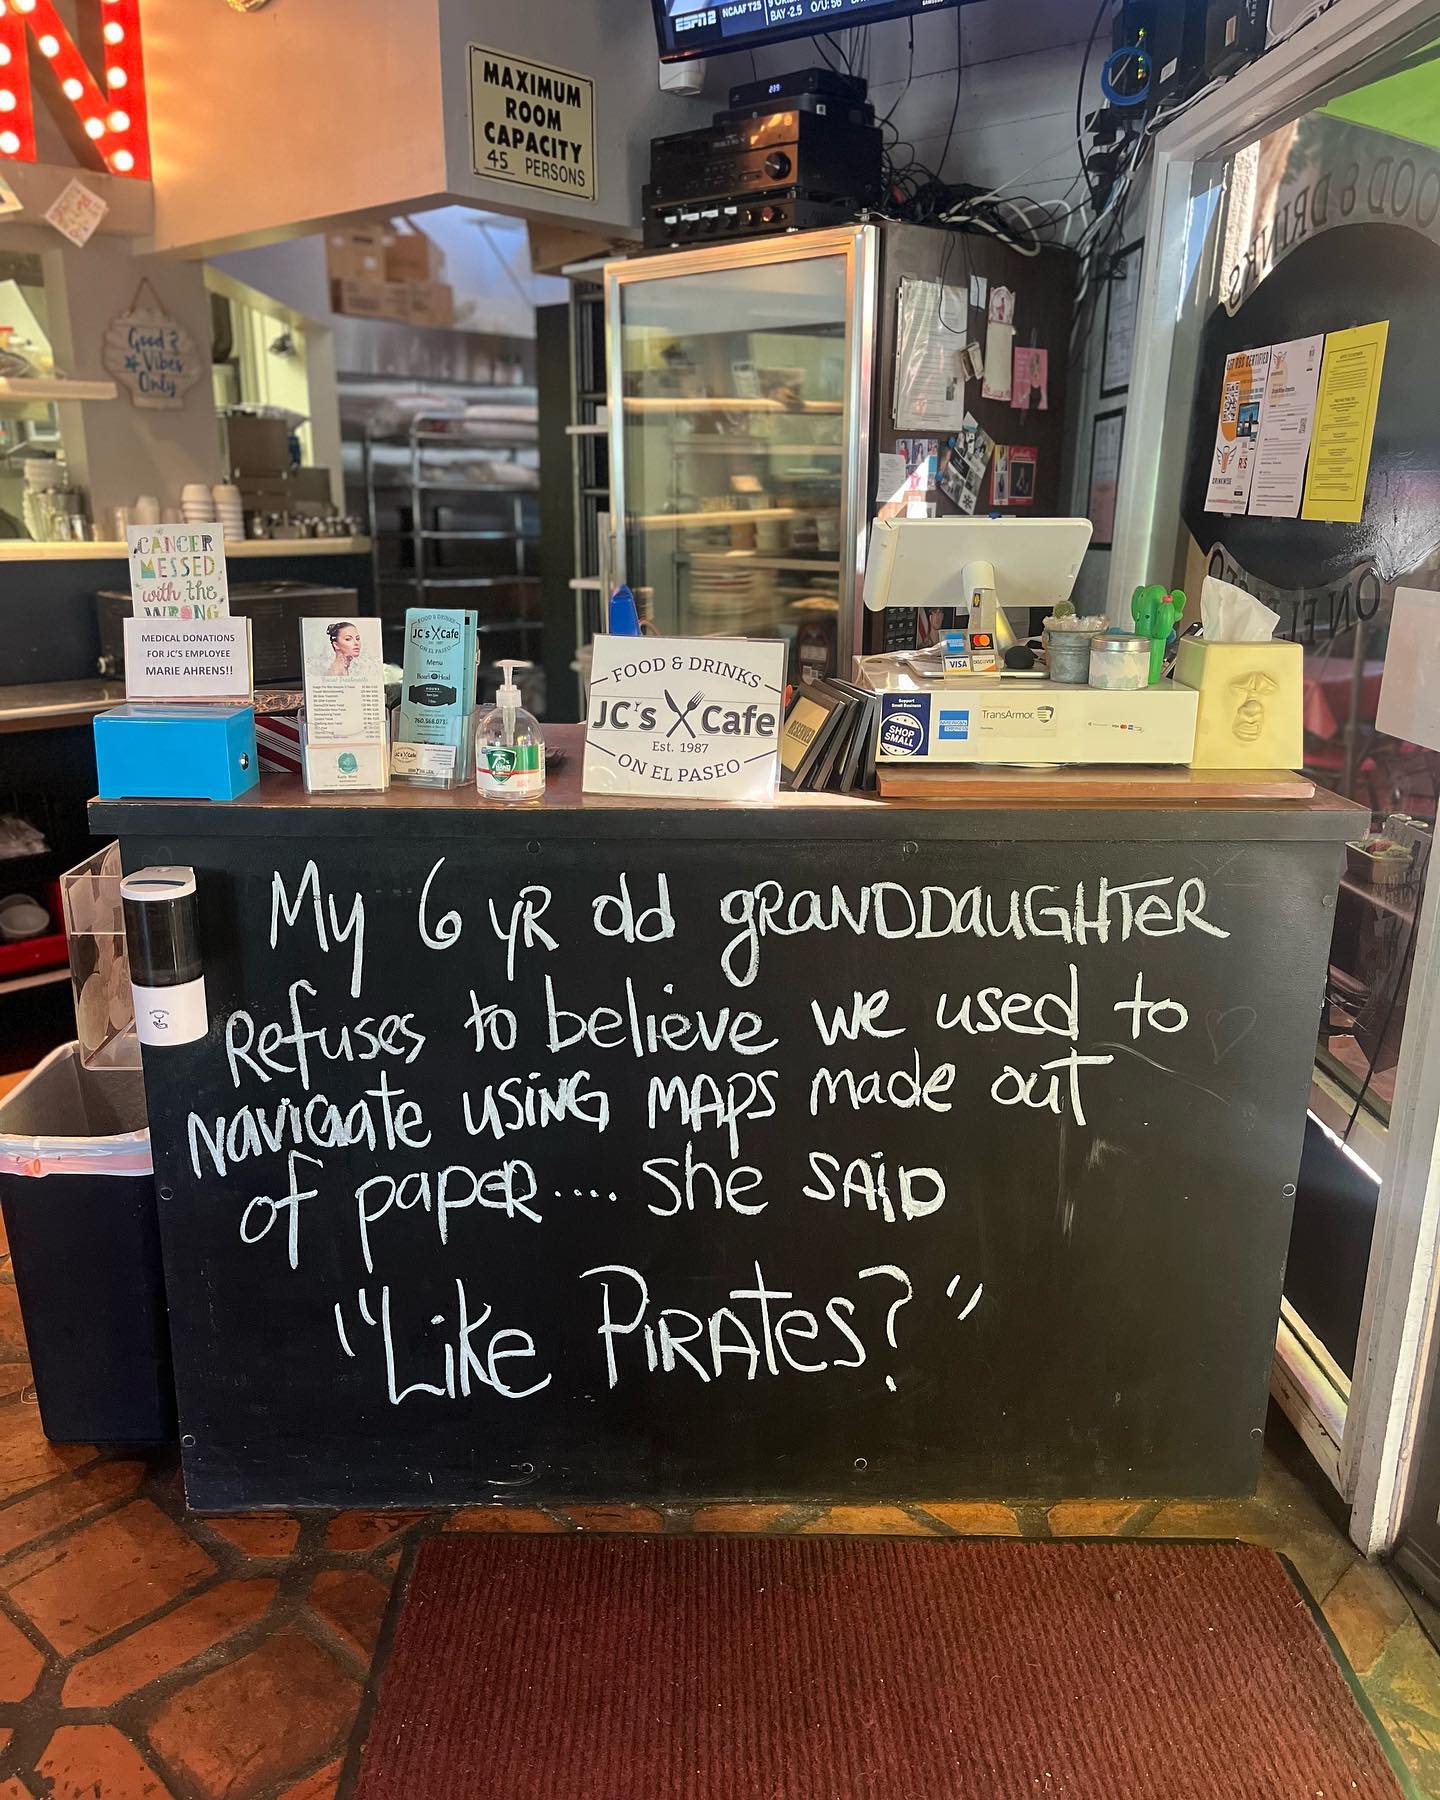 ESPN2 NCAAF T25
BAY -2.5 O/U: 56
N
MAXIMUM
ROOM
CAPACITY
45 PERSONS
Good
Vibes
Only
FOOD & DRINKS
ON EL
CANCER
MESSED
with the
WRONG
MEDICAL DONATIONS
FOR JC'S EMPLOYEE
MARIE AHRENS!!
Facial Treatments
FOOD & DRINKS
JC's Cafe
ON EL PASEO
Menu
Boar's Head
FOOD & DRINKS
JC's Cafe
Est. 1987
ON EL PASEO
RESERVED
VISA
DISCOVER
Support
Small Business
SHOP
SMALL
AMERICAN
EXPRESS
TransArmor
My 6 yR old gRaNDDaUGHTeR
Refuses to believe we used to
Navigate USiNG MAPS made out
of papeR.... she SAiD
"Like PiRAtes?"